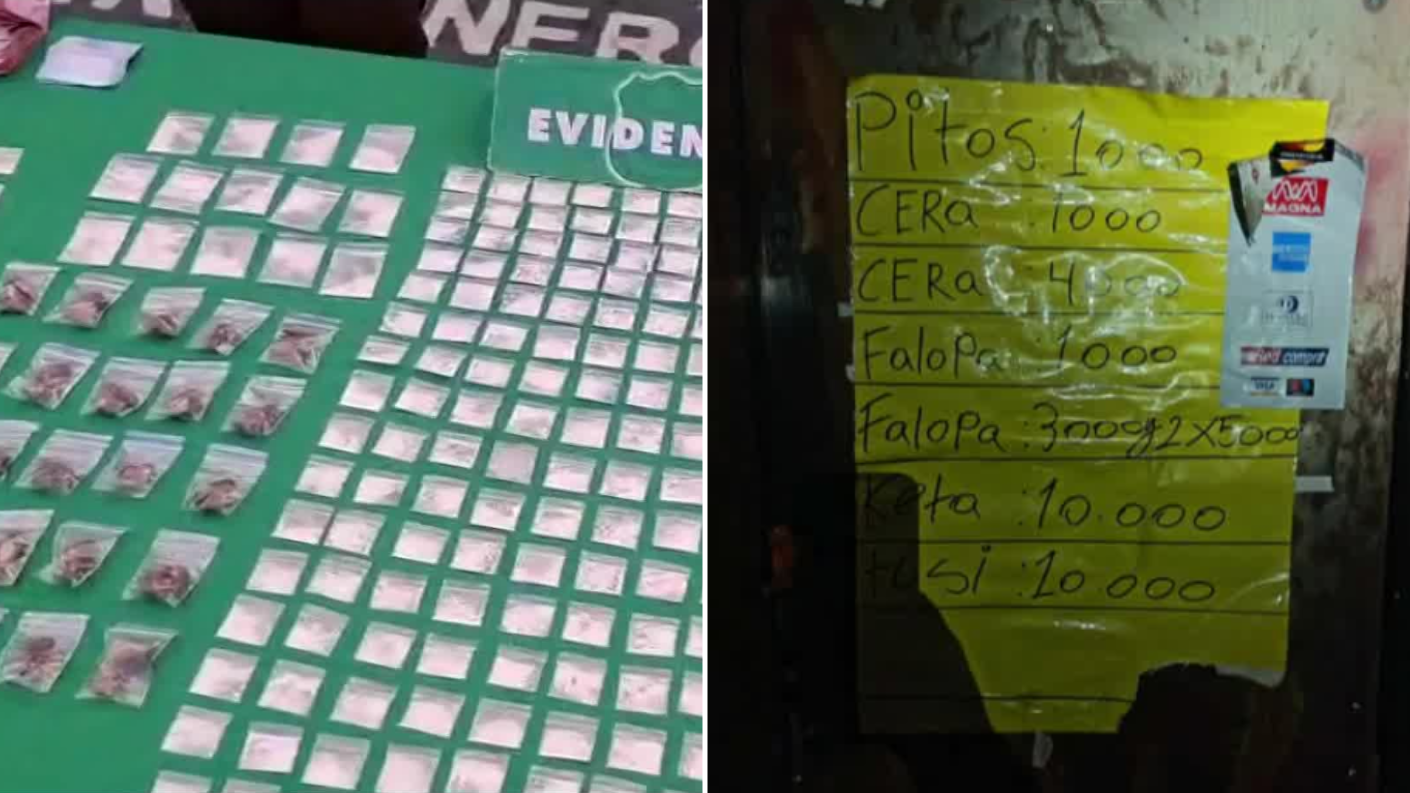 NERO
EVIDEN
Pitos: 1000
CERa : 1000
CERa : 4000
Falopa : 1000
Falopa : 3000 y 2x5000
Keta : 10.000
tusi : 10.000
MAGNA
VISA